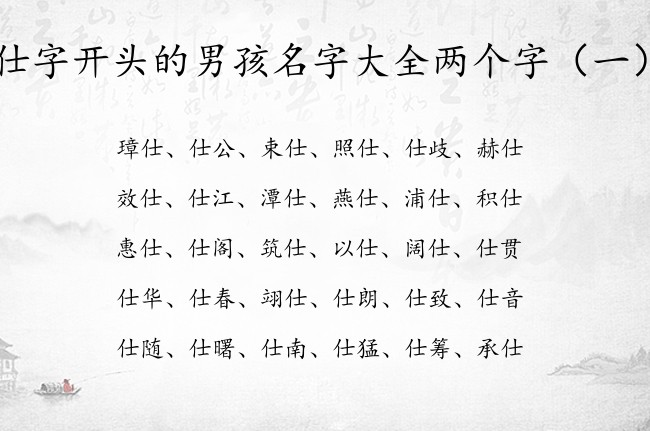 仕字开头的男孩名字大全两个字（一）
璋仕、仕公、束仕、照仕、仕歧、赫仕
效仕、仕江、潭仕、燕仕、浦仕、积仕
惠仕、仕阁、筑仕、以仕、阔仕、仕贯
仕华、仕春、翊仕、仕朗、仕致、仕音
仕随、仕曙、仕南、仕猛、仕筹、承仕